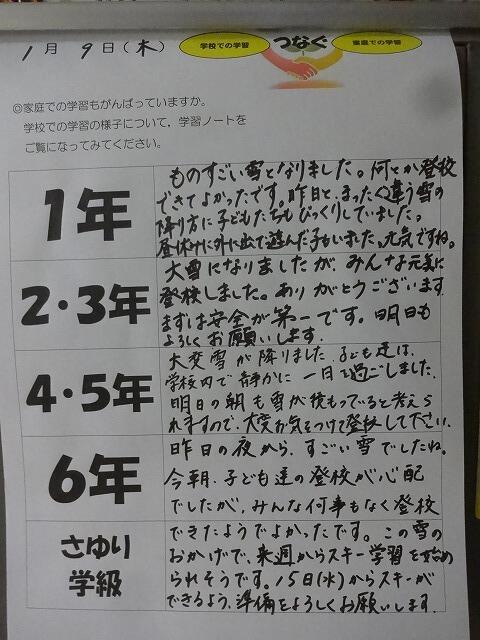 1月9日(木)
学校での学習 つなぐ 家庭での学習
◎家庭での学習もがんばっていますか。
学校での学習の様子について，学習ノートを
ご覧になってみてください。
1年
ものすごい雪となりました。何とか登校
できてよかったです。昨日と、まったく違う雪の
降り方に子どもたちもびっくりしていました。
昼休みに外に出て遊んだ子もいました。元気ですね。
2・3年
大雪になりましたが、みんな元気に
登校しました。ありがとうございます
まずは安全が第一です。明日も
よろしくお願いします。
4・5年
大変雪が降りました。子ども達は、
学校内で静かに一日を過ごしました。
明日の朝も雪が積もっていると考えら
れますので、大変お気をつけて登校して下さい。
6年
昨日の夜から、すごい雪でしたね。
今朝、子ども達の登校が心配
でしたが、みんな何事もなく登校
さゆり
学級
できたようでよかったです。この雪の
おかげで、来週からスキー学習を始め
られそうです。15日(水)からスキーが
できるよう、準備をよろしくお願いします。